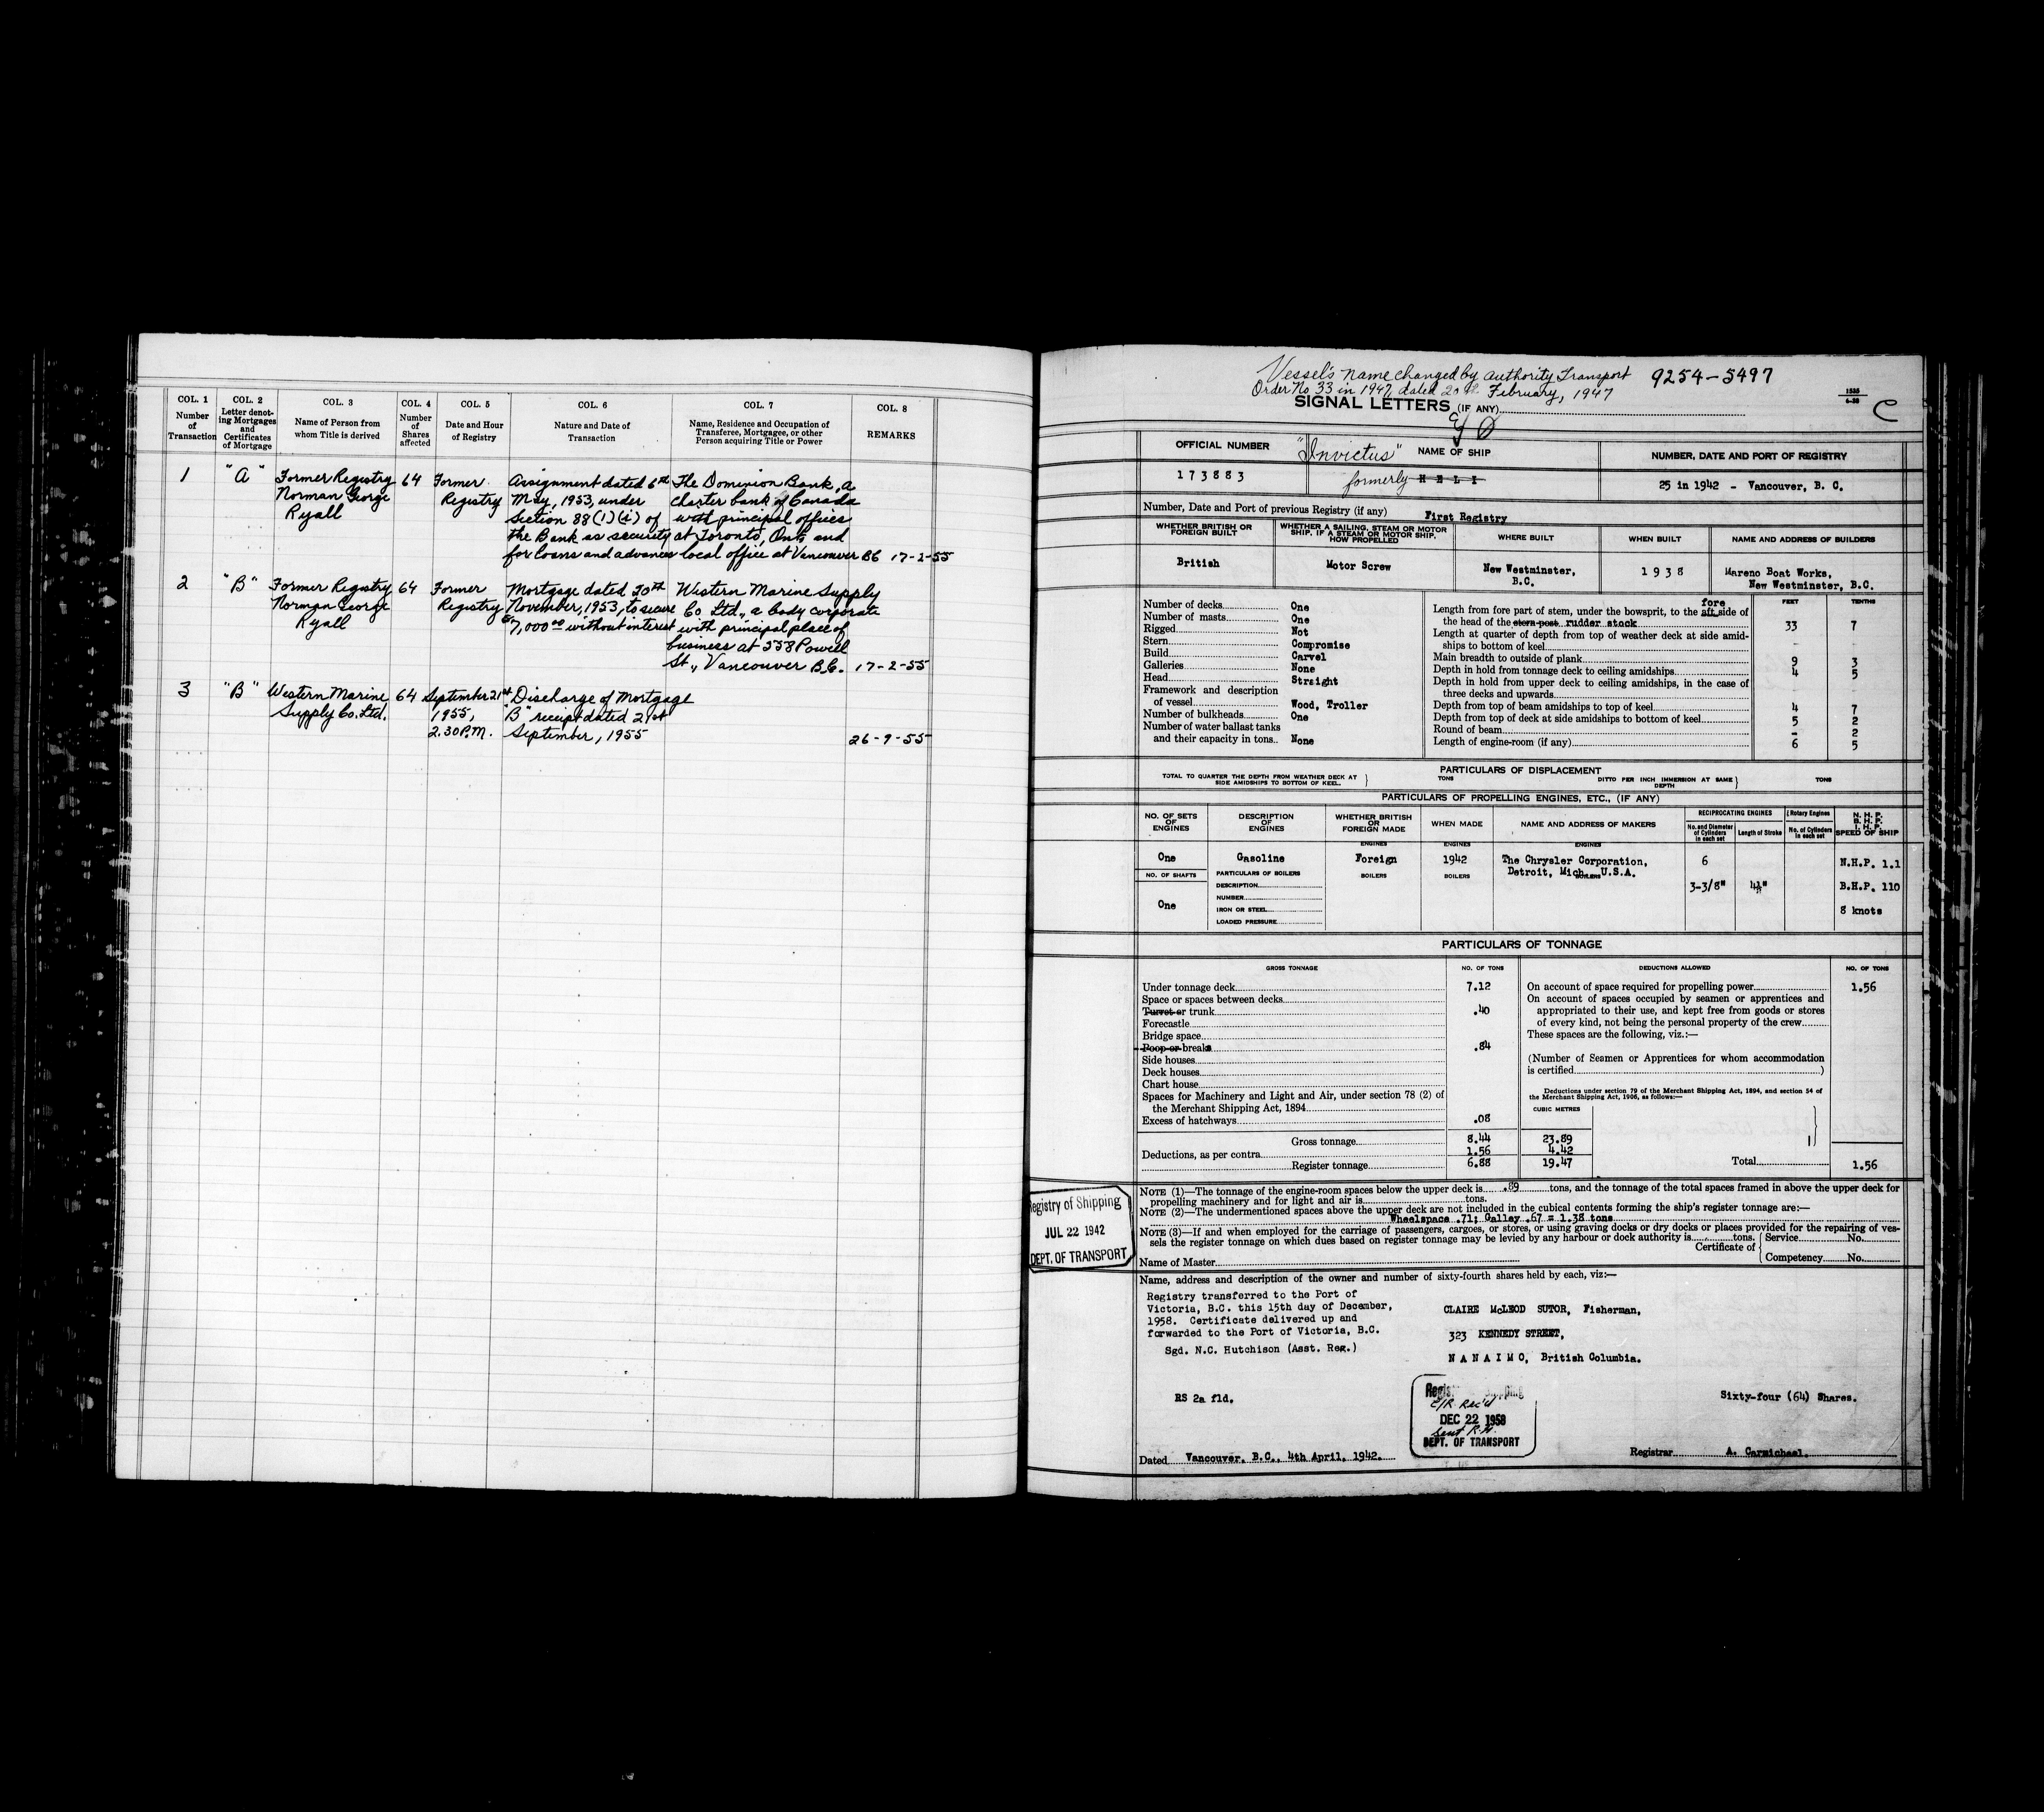 COL. 1 COL. 2 COL. 3 COL. 4 COL. 5 COL. 6 COL. 7 COL. 8
Number of Transaction
Letter denot-ing Mortgages and Certificates of Mortgage
Name of Person from whom Title is derived
Number of Shares affected
Date and Hour of Registry
Nature and Date of Transaction
Name, Residence and Occupation of Transferee, Mortgagee, or other Person acquiring Title or Power
REMARKS
1 "A" Former Registry 64 Former Assignment dated 6th The Dominion Bank, a
Norman George Registry May, 1953, under Charter bank of Canada
Ryall Section 88(1)(i) of with principal offices
the Bank as security at Toronto, Ont. and
for loans and advances local office at Vancouver BC 17-2-55
2 "B" Former Registry 64 Former Mortgage dated 30th Western Marine Supply
Norman George Registry November, 1953, to secure Co Ltd., a body corporate
Ryall $7,000.00 without interest with principal place of
business at 558 Powell
St., Vancouver B.C. 17-2-55
3 "B" Western Marine 64 September 21st Discharge of Mortgage
Supply Co. Ltd. 1955, "B" receipt dated 21st
2.30 P.M. September, 1955
26-9-55
Vessel's name changed by authority Transport 9254-5497
Order No 33 in 1947, dated 20th February, 1947
SIGNAL LETTERS (IF ANY)
C
OFFICIAL NUMBER "Invictus" NAME OF SHIP NUMBER, DATE AND PORT OF REGISTRY
173883 formerly HELI 25 in 1942 - Vancouver, B. C.
Number, Date and Port of previous Registry (if any) First Registry
WHETHER BRITISH OR FOREIGN BUILT
WHETHER A SAILING, STEAM OR MOTOR SHIP. IF A STEAM OR MOTOR SHIP. HOW PROPELLED
WHERE BUILT WHEN BUILT NAME AND ADDRESS OF BUILDERS
British Motor Screw New Westminster, 1938 Mareno Boat Works,
B.C. New Westminster, B.C.
Number of decks One
Number of masts One
Rigged Not
Stern Compromise
Build Carvel
Galleries None
Head Straight
Framework and description
of vessel Wood, Troller
Number of bulkheads One
Number of water ballast tanks
and their capacity in tons.. None
FEET TENTHS
fore
Length from fore part of stem, under the bowsprit, to the aft side of
the head of the stern post rudder stock 33 7
Length at quarter of depth from top of weather deck at side amid-
ships to bottom of keel - -
Main breadth to outside of plank 9 3
Depth in hold from tonnage deck to ceiling amidships 4 5
Depth in hold from upper deck to ceiling amidships, in the case of
three decks and upwards - -
Depth from top of beam amidships to top of keel 4 7
Depth from top of deck at side amidships to bottom of keel 5 2
Round of beam - 2
Length of engine-room (if any) 6 5
PARTICULARS OF DISPLACEMENT
TOTAL TO QUARTER THE DEPTH FROM WEATHER DECK AT SIDE AMIDSHIPS TO BOTTOM OF KEEL. } TONS DITTO PER INCH IMMERSION AT SAME DEPTH } TONS
PARTICULARS OF PROPELLING ENGINES, ETC., (IF ANY)
NO. OF SETS OF ENGINES
DESCRIPTION OF ENGINES
WHETHER BRITISH OR FOREIGN MADE
WHEN MADE
NAME AND ADDRESS OF MAKERS
RECIPROCATING ENGINES
No. and Diameter of Cylinders in each set
Length of Stroke
Rotary Engines
No. of Cylinders in each set
N.H.P. B.H.P. I.H.P. SPEED OF SHIP
ENGINES ENGINES ENGINES
One Gasoline Foreign 1942 The Chrysler Corporation, 6 N.H.P. 1.1
NO. OF SHAFTS PARTICULARS OF BOILERS BOILERS BOILERS BOILERS Detroit, Mich. U.S.A.
DESCRIPTION 3-3/8" B.H.P. 110
NUMBER
One IRON OR STEEL 8 knots
LOADED PRESSURE
PARTICULARS OF TONNAGE
GROSS TONNAGE NO. OF TONS DEDUCTIONS ALLOWED NO. OF TONS
Under tonnage deck 7.12
Space or spaces between decks
Turret or trunk .40
Forecastle
Bridge space
Poop or breaks .84
Side houses
Deck houses
Chart house
Spaces for Machinery and Light and Air, under section 78 (2) of
the Merchant Shipping Act, 1894
Excess of hatchways .08
Gross tonnage 8.44 23.89
Deductions, as per contra 1.56 4.42
Register tonnage 6.88 19.47
On account of space required for propelling power 1.56
On account of spaces occupied by seamen or apprentices and
appropriated to their use, and kept free from goods or stores
of every kind, not being the personal property of the crew
These spaces are the following, viz.:—
(Number of Seamen or Apprentices for whom accommodation
is certified )
Deductions under section 79 of the Merchant Shipping Act, 1894, and section 54 of
the Merchant Shipping Act, 1906, as follows:—
CUBIC METRES
Total 1.56
NOTE (1)—The tonnage of the engine-room spaces below the upper deck is .89 tons, and the tonnage of the total spaces framed in above the upper deck for
propelling machinery and for light and air is tons.
NOTE (2)—The undermentioned spaces above the upper deck are not included in the cubical contents forming the ship's register tonnage are:—
Wheelspace .71; Galley .67 = 1.38 tons
NOTE (3)—If and when employed for the carriage of passengers, cargoes, or stores, or using graving docks or dry docks or places provided for the repairing of ves-
sels the register tonnage on which dues based on register tonnage may be levied by any harbour or dock authority is tons.
Certificate of { Service No.
Competency No.
Name of Master
Registry of Shipping
JUL 22 1942
DEPT. OF TRANSPORT
Name, address and description of the owner and number of sixty-fourth shares held by each, viz:—
Registry transferred to the Port of
Victoria, B.C. this 15th day of December,
1958. Certificate delivered up and
forwarded to the Port of Victoria, B.C.
Sgd. N.C. Hutchison (Asst. Reg.)
CLAIRE McLEOD SUTOR, Fisherman,
323 KENNEDY STREET,
NANAIMO, British Columbia.
RS 2a fld.
C/R Rec'd
DEC 22 1958
DEPT. OF TRANSPORT
Sixty-four (64) Shares.
Dated Vancouver, B.C., 4th April, 1942. Registrar A. Carmichael